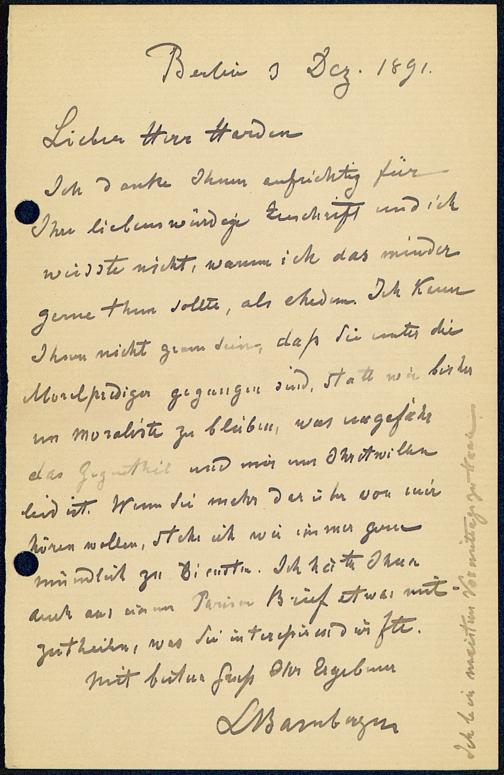 Berlin 3 Dez. 1891.
Lieber Herr Harden
Ich danke Ihnen aufrichtig für
Ihre liebenswürdige Zuschrift und ich
wüsste nicht, warum ich das minder
gerne thun sollte, als ehedem. Ich kann
Ihnen nicht gram sein, daß Sie unter die
Moralprediger gegangen sind, statt wie bisher
ein Moraliste zu bleiben, was ungefähr
das Gegentheil und mir um Ihretwillen
leid ist. Wenn Sie mehr darüber von mir
hören wollen, stehe ich wie immer gern
mündlich zu Diensten. Ich hätte Ihnen
auch aus einem Pariser Brief etwas mit-
zutheilen, was Sie interessieren dürfte.
Mit bestem Gruß Ihr Ergebener
LBamberger
Ich bin meistens Vormittags zu Hause